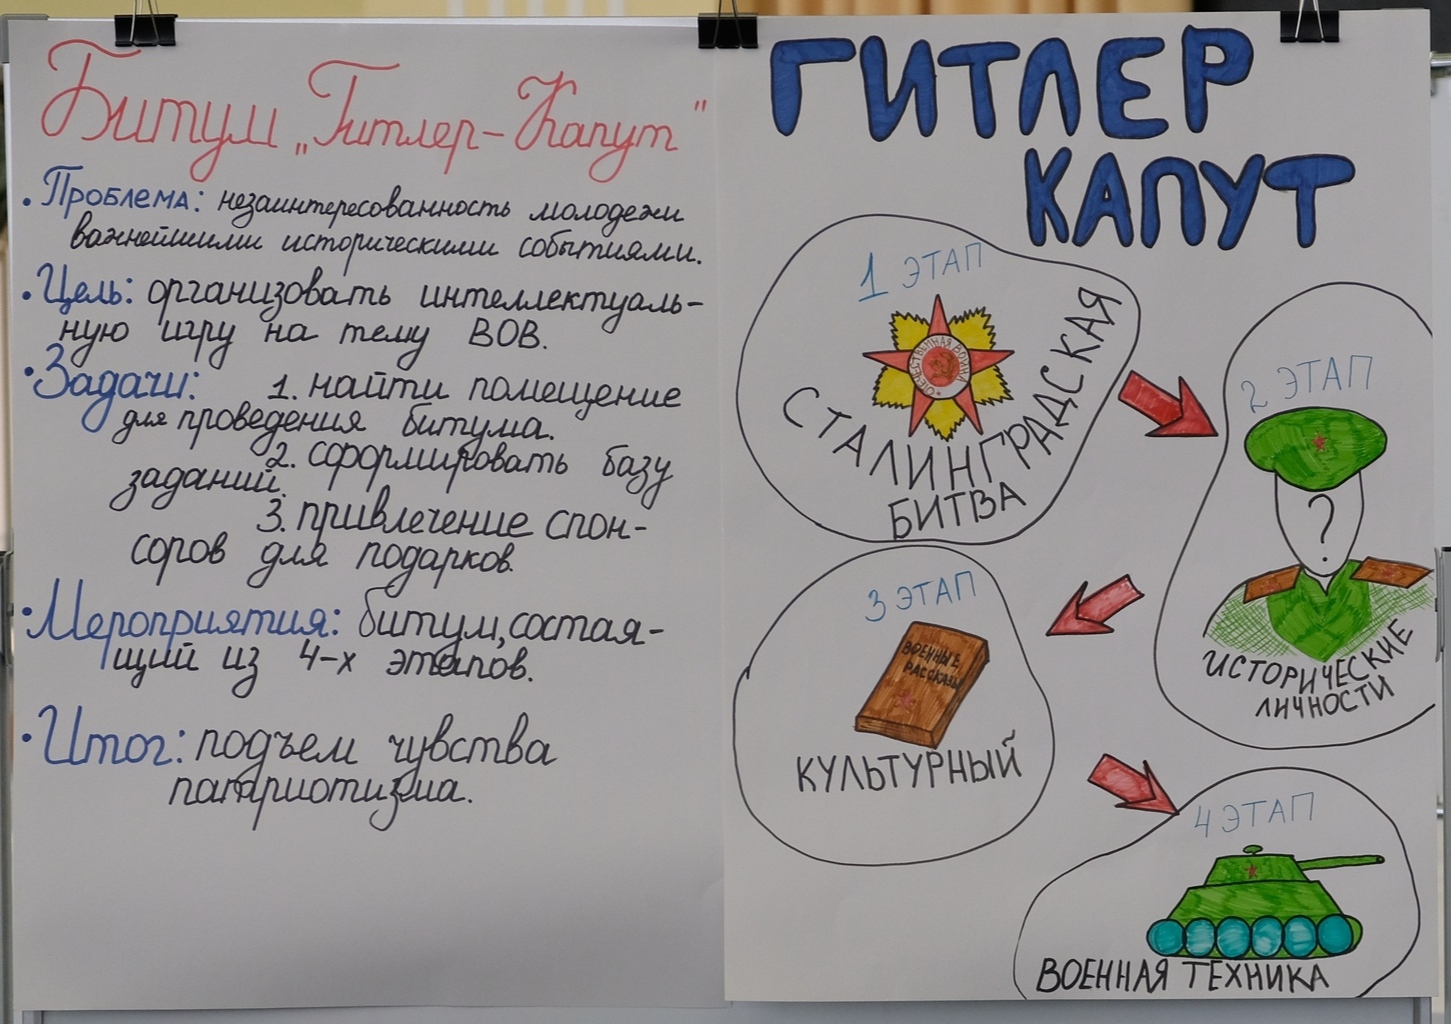 Битум „Гитлер-Капут"
• Проблема: незаинтересованность молодежи
важнейшими историческими событиями.
• Цель: организовать интеллектуаль-
ную игру на тему ВОВ.
• Задачи: 1. найти помещение
для проведения битума.
2. сформировать базу
заданий.
3. привлечение спон-
соров для подарков.
• Мероприятия: битум, состоя-
щий из 4-х этапов.
• Итог: подъем чувства
патриотизма.
ГИТЛЕР
КАПУТ
1 ЭТАП
ОТЕЧЕСТВЕННАЯ ВОЙНА
СТАЛИНГРАДСКАЯ
БИТВА
2 ЭТАП
?
ИСТОРИЧЕСКИЕ
ЛИЧНОСТИ
3 ЭТАП
ВОЕННЫЕ
РАССКАЗЫ
КУЛЬТУРНЫЙ
4 ЭТАП
ВОЕННАЯ ТЕХНИКА